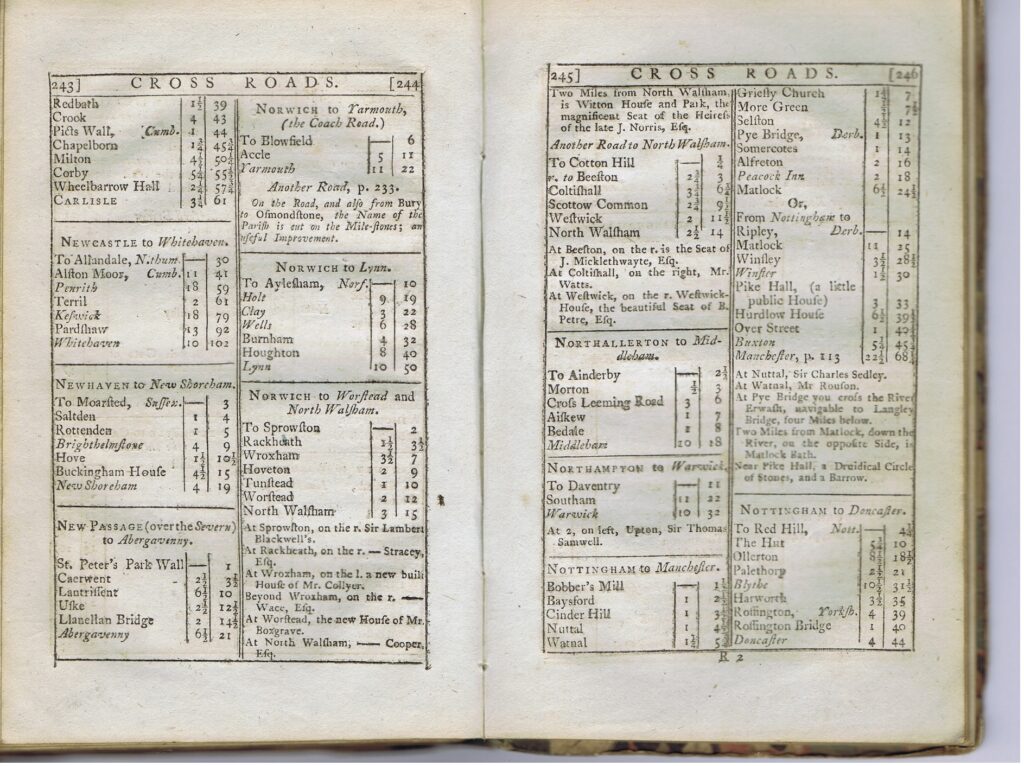 243] CROSS ROADS. [244
Redbath 1½ 39
Crook 4 43
Picts Wall, Cumb. 1 44
Chapelborn 1¾ 45¾
Milton 4¾ 50½
Corby 5¼ 55¾
Wheelbarrow Hall 2¼ 57¾
CARLISLE 3¼ 61
NEWCASTLE to Whitehaven.
To Allandale, N.thum. — 30
Alſton Moor, Cumb. 11 41
Penrith 18 59
Terril 2 61
Keſwick 18 79
Pardſhaw 13 92
Whitehaven 10 102
NEWHAVEN to New Shoreham.
To Moarſted, Suſſex. — 3
Saltden 1 4
Rottenden 1 5
Brighthelmſtone 4 9
Hove 1½ 10½
Buckingham Houſe 4½ 15
New Shoreham 4 19
NEW PASSAGE (over the Severn)
to Abergavenny.
St. Peter's Park Wall — 1
Caerwent 2½ 3½
Lantriſſent 6½ 10
Uſke 2½ 12½
Llanellan Bridge 2 14½
Abergavenny 6½ 21
NORWICH to Yarmouth,
(the Coach Road.)
To Blowfield — 6
Accle 5 11
Yarmouth 11 22
Another Road, p. 233.
On the Road, and alſo from Bury
to Oſmondſtone, the Name of the
Pariſh is cut on the Mile-ſtones; an
uſeful Improvement.
NORWICH to Lynn.
To Ayleſham, Norf. — 10
Holt 9 19
Clay 3 22
Wells 6 28
Burnham 4 32
Houghton 8 40
Lynn 10 50
NORWICH to Worſtead and
North Walſham.
To Sprowſton — 2
Rackheath 1½ 3½
Wroxham 3½ 7
Hoveton 2 9
Tunſtead 1 10
Worſtead 2 12
North Walſham 3 15
At Sprowſton, on the r. Sir Lambert
Blackwell's.
At Rackheath, on the r. — Stracey,
Eſq.
At Wroxham, on the l. a new built
Houſe of Mr. Collyer.
Beyond Wroxham, on the r. —
Wace, Eſq.
At Worſtead, the new Houſe of Mr.
Boxgrave.
At North Walſham, — Cooper,
Eſq.
245] CROSS ROADS. [246
Two Miles from North Walſham,
is Witton Houſe and Park, the
magnificent Seat of the Heireſs
of the late J. Norris, Eſq.
Another Road to North Walſham.
To Cotton Hill — ¼
r. to Beeſton 2¾ 3
Coltiſhall 3¾ 6¾
Scottow Common 2¾ 9½
Weſtwick 2 11½
North Walſham 2½ 14
At Beeſton, on the r. is the Seat of
J. Micklethwayte, Eſq.
At Coltiſhall, on the right, Mr.
Watts.
At Weſtwick, on the r. Weſtwick-
Houſe, the beautiful Seat of B.
Petre, Eſq.
NORTHALLERTON to Mid-
dleham.
To Ainderby — 2½
Morton ½ 3
Croſs Leeming Road 3 6
Aiſkew 1 7
Bedale 1 8
Middleham 10 18
NORTHAMPTON to Warwick.
To Daventry — 11
Southam 11 22
Warwick 10 32
At 2, on left, Upton, Sir Thomas
Samwell.
NOTTINGHAM to Mancheſter.
Bobber's Mill — 1½
Baysford 1 2½
Cinder Hill 1 3½
Nuttal 1 4½
Watnal 1½ 5¾
Grieſly Church 1¼ 7
More Green ½ 7½
Selſton 4½ 12
Pye Bridge, Derb. 1 13
Somercotes 1 14
Alfreton 2 16
Peacock Inn 2 18
Matlock 6½ 24½
Or,
From Nottingham to
Ripley, Derb. — 14
Matlock 11 25
Winſley 3½ 28½
Winſter 1½ 30
Pike Hall, (a little
public Houſe) 3 33
Hurdlow Houſe 6½ 39½
Over Street 1 40½
Buxton 5¼ 45¾
Mancheſter, p. 113 22½ 68¼
At Nuttal, Sir Charles Sedley.
At Watnal, Mr Rouſon.
At Pye Bridge you croſs the River
Erwaſh, navigable to Langley
Bridge, four Miles below.
Two Miles from Matlock, down the
River, on the oppoſite Side, is
Matlock Bath.
Near Pike Hall, a Druidical Circle
of Stones, and a Barrow.
NOTTINGHAM to Doncaſter.
To Red Hill, Nott. — 4¾
The Hut 5¼ 10
Ollerton 8½ 18½
Palethorp 2½ 21
Blythe 10½ 31½
Harworth 3½ 35
Roſſington, Yorkſh. 4 39
Roſſington Bridge 1 40
Doncaſter 4 44
R 2